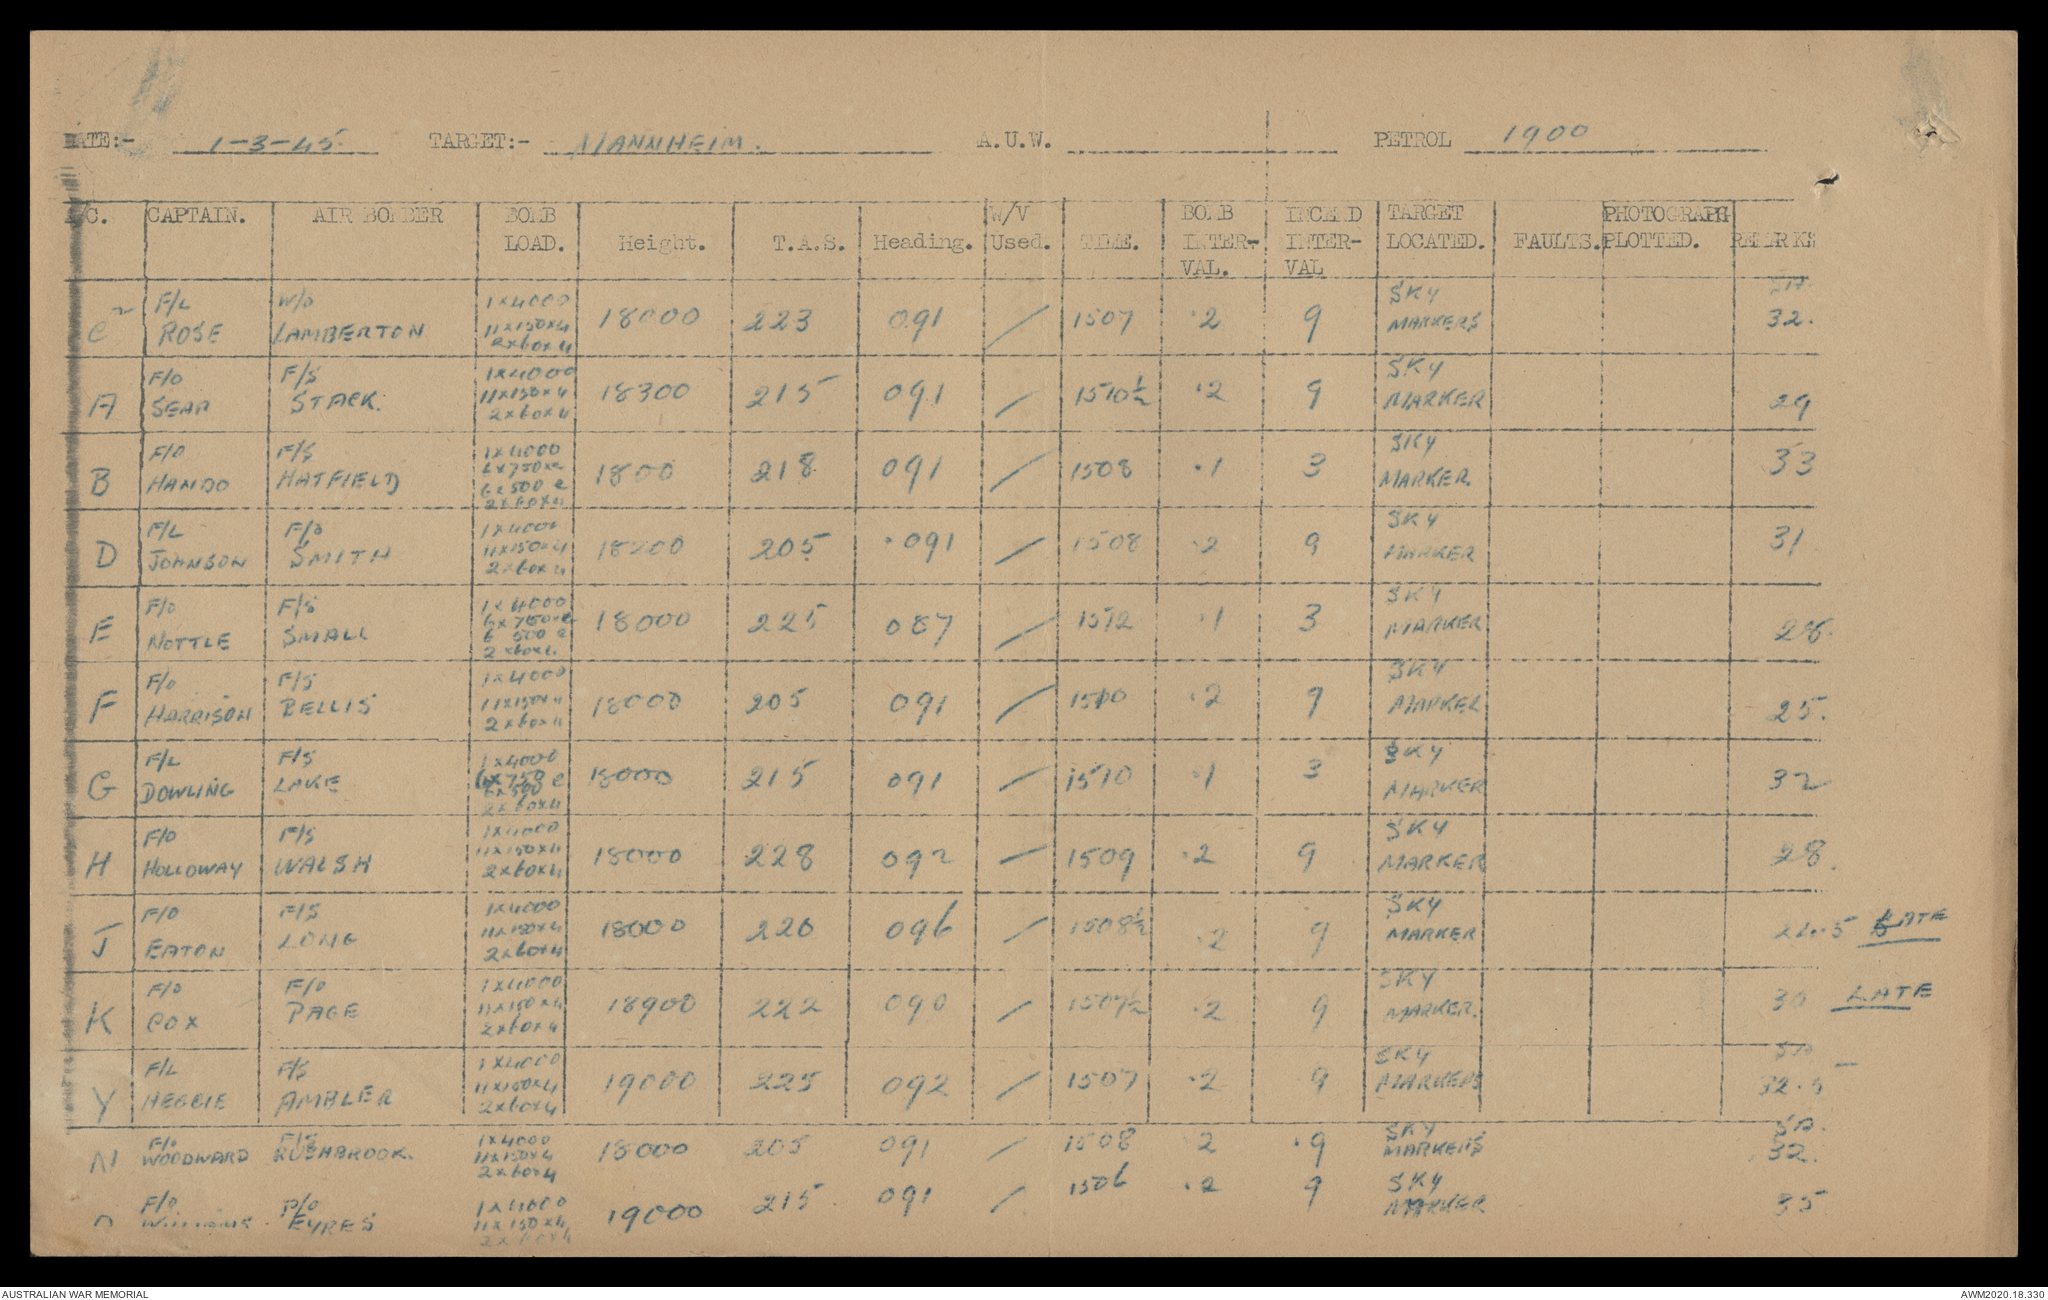 DATE:- 1-3-45. TARGET:- MANNHEIM. A.U.W. PETROL 1900
A/C. CAPTAIN. AIR BOMBER BOMB LOAD. Height. T.A.S. Heading. W/V Used. TIME. BOMB INTER-VAL. INCEND INTER-VAL TARGET LOCATED. FAULTS. PHOTOGRAPH PLOTTED. REMARKS
C2 F/L ROSE W/O LAMBERTON 1x4000 11x150x4 2x60x4 18000 223 091 / 1507 .2 9 SKY MARKERS 32.
A F/O F/S STACK. 1x4000 11x150x4 2x60x4 18300 215 091 / 1510½ .2 9 SKY MARKER 29
B F/O HANDO F/S HATFIELD 1x4000 6x500 2x60x4 1800 218 091 / 1508 .1 3 SKY MARKER. 33
D F/L JOHNSON F/O SMITH 1x4000 11x150x4 2x60x4 18200 205 091 / 1508 .2 9 SKY MARKER 31
E F/O NOTTLE F/S SMALL 1x4000 6x750 6 500 2x60x4 18000 225 087 / 1512 .1 3 SKY MARKER 28.
F F/O HARRISON F/S BELLIS 1x4000 11x150x4 2x60x4 18000 205 091 / 1510 .2 9 SKY MARKER 25.
G F/L DOWLING F/S LAKE 1x4000 6x750 6x500 2x60x4 18000 215 091 / 1510 .1 3 SKY MARKER 32
H F/O HOLLOWAY F/S WALSH 1x4000 11x150x4 2x60x4 18000 228 092 / 1509 .2 9 SKY MARKER 28.
J F/O EATON F/S LONG 1x4000 11x150x4 2x60x4 18000 220 096 / 1508½ .2 9 SKY MARKER LATE
K F/O COX F/O PAGE 1x4000 11x150x4 2x60x4 18900 222 090 / 1507½ .2 9 SKY MARKER. 30 LATE
Y F/L HEGGIE F/S AMBLER 1x4000 11x150x4 2x60x4 19000 225 092 / 1507 .2 9 SKY MARKERS 32.5
N F/O WOODWARD F/S RUSHBROOK. 1x4000 11x150x4 2x60x4 18000 205 091 / 1508 2 .9 SKY MARKERS 32.
F/O WILLIAMS P/O EYRES 1x4000 11x150x4 2x60x4 19000 215 091 / 1506 .2 9 SKY MARKER 35
AUSTRALIAN WAR MEMORIAL AWM2020.18.330